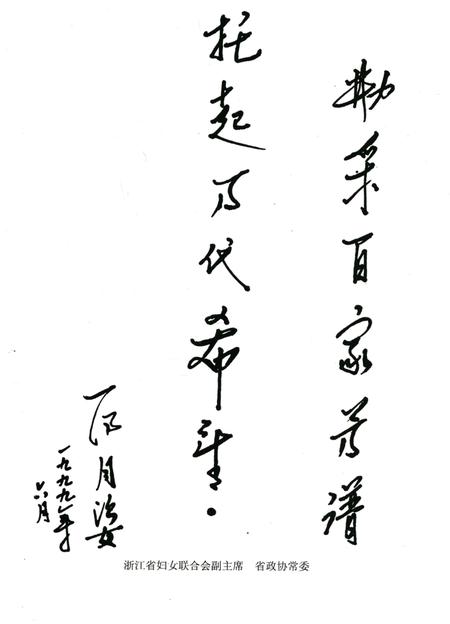 勤采百家谱
托起代希望.
一九九九年
六月
浙江省妇女联合会副主席 省政协常委